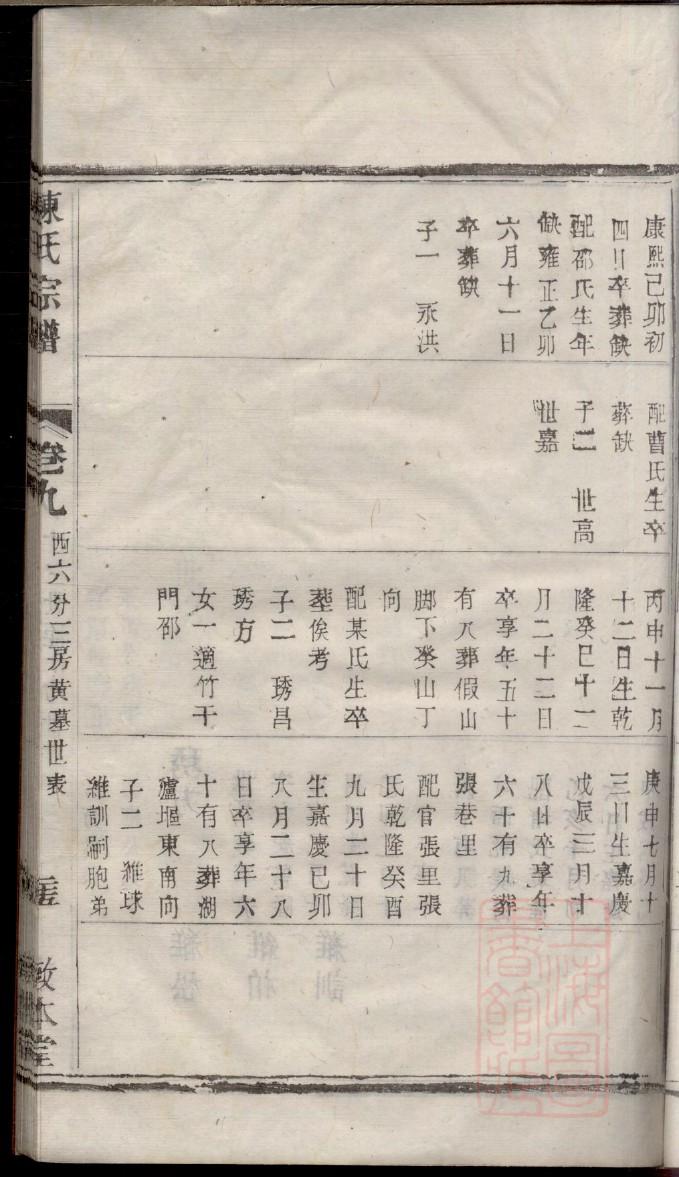 康熙己卯初
四日卒葬缺
配邵氏生年
缺雍正乙卯
六月十一日
卒葬缺
子一　永洪
配曹氏生卒
葬缺
子二　世高
世嘉
丙申十一月
十二日生乾
隆癸巳十二
月二十二日
卒享年五十
有八葬假山
脚下癸山丁
向
配某氏生卒
葬俟考
子二　琇昌
琇方
女一適竹干
門邵
庚申七月十
三日生嘉慶
戊辰三月十
八日卒享年
六十有九葬
張巷里
配官張里張
氏乾隆癸酉
九月二十日
生嘉慶己卯
八月二十八
日卒享年六
十有八葬湖
瀘堰東南向
子二　維球
維訓嗣胞弟
陳氏宗譜
卷九
西六分三房黃墓世表
敦本堂
上海圖書館藏